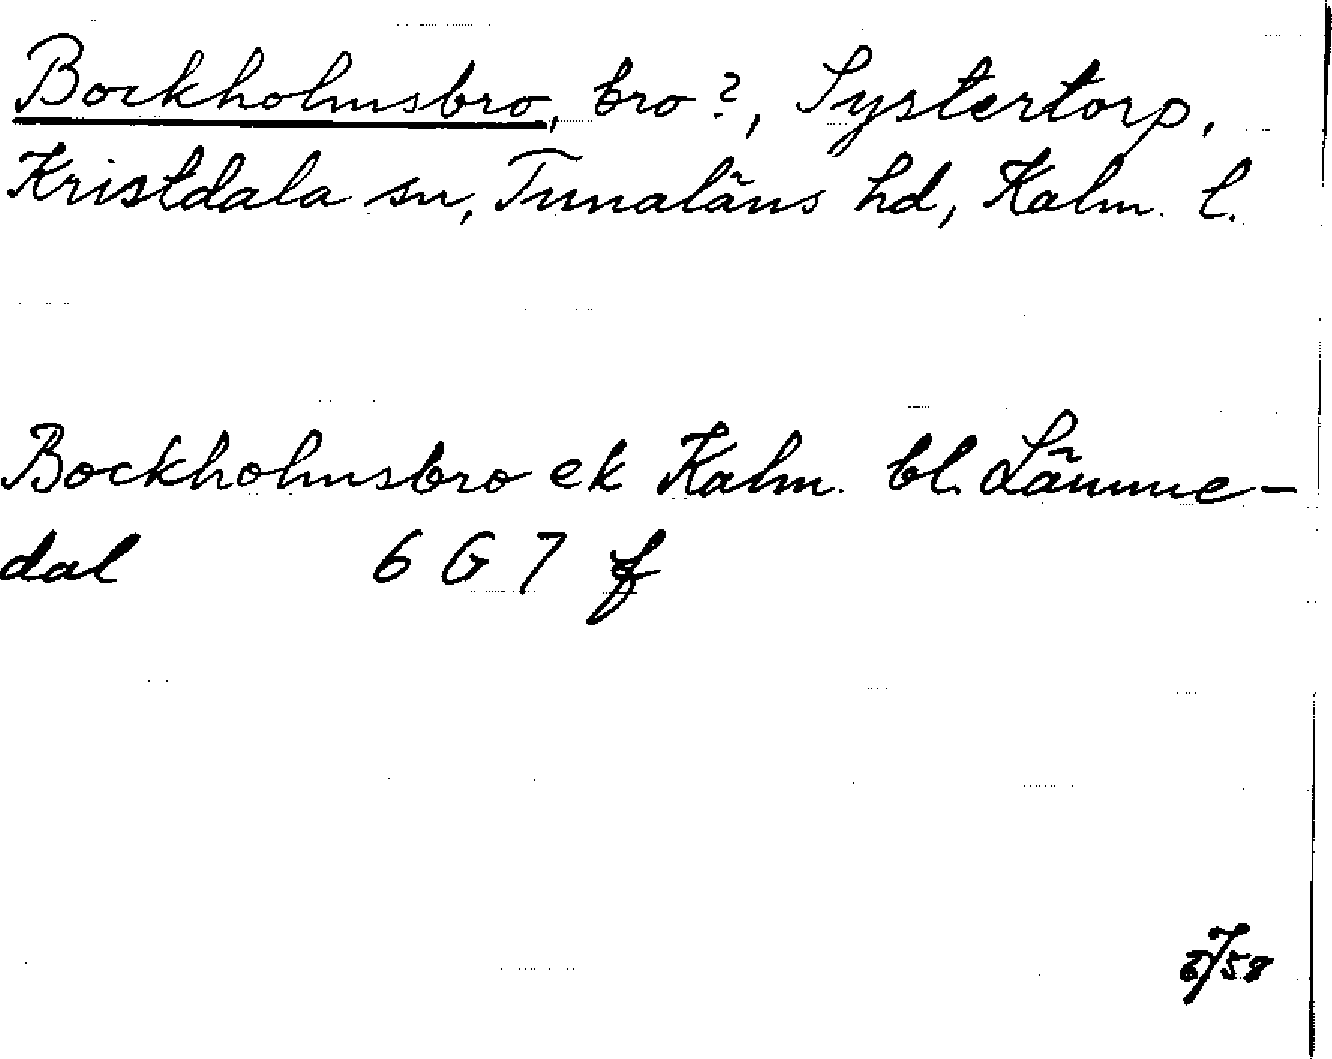 Bockholmsbro, bro?, Systertorp,
Kristdala sn, Tunaläns hd, Kalm. l.
Bockholmsbro ek Kalm. bl. Lämme-
dal 6 G 7 f